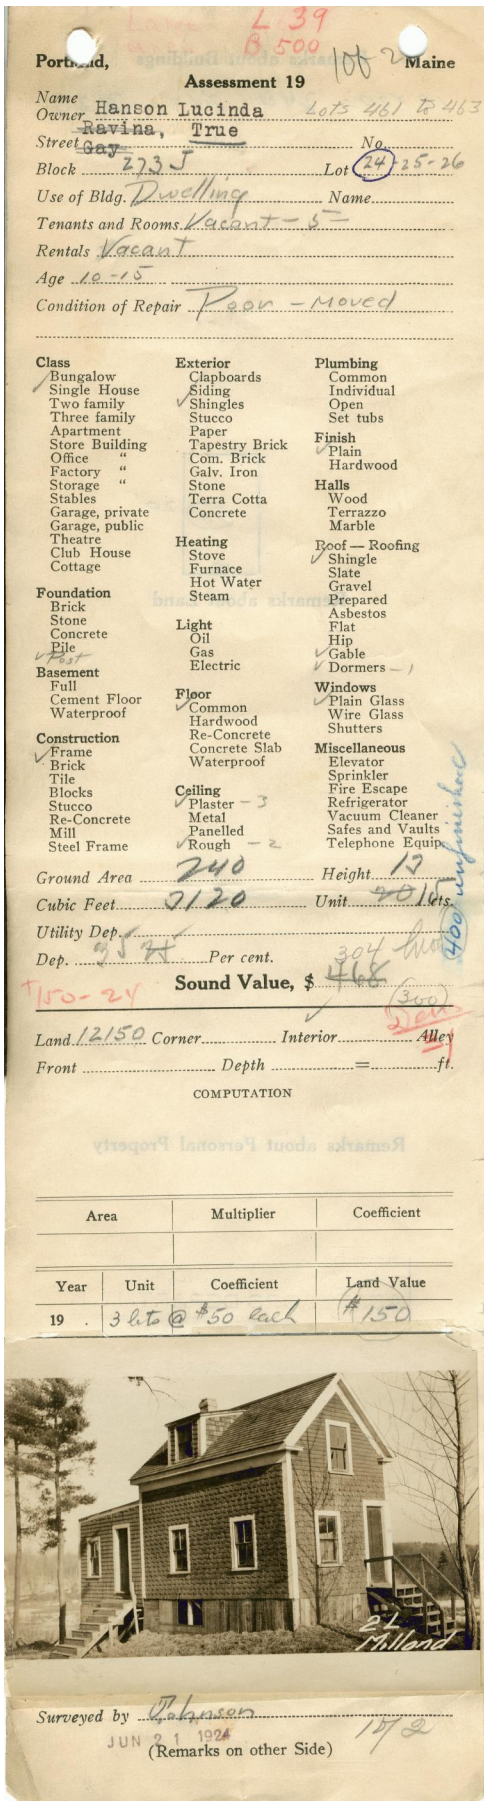 L 39
B 500
1 of 2
Portland, Maine
Assessment 19
Name
Owner Hanson Lucinda Lots 461 to 463
Ravina, True
Street Gay No.
Block 273 J Lot 24-25-26
Use of Bldg. Dwelling Name
Tenants and Rooms Vacant - 5 -
Rentals Vacant
Age 10-15
Condition of Repair Poor - Moved
Class
Bungalow
Single House
Two family
Three family
Apartment
Store Building
Office "
Factory "
Storage "
Stables
Garage, private
Garage, public
Theatre
Club House
Cottage
Foundation
Brick
Stone
Concrete
Pile
Post
Basement
Full
Cement Floor
Waterproof
Construction
Frame
Brick
Tile
Blocks
Stucco
Re-Concrete
Mill
Steel Frame
Exterior
Clapboards
Siding
Shingles
Stucco
Paper
Tapestry Brick
Com. Brick
Galv. Iron
Stone
Terra Cotta
Concrete
Heating
Stove
Furnace
Hot Water
Steam
Light
Oil
Gas
Electric
Floor
Common
Hardwood
Re-Concrete
Concrete Slab
Waterproof
Ceiling
Plaster - 3
Metal
Panelled
Rough - 2
Plumbing
Common
Individual
Open
Set tubs
Finish
Plain
Hardwood
Halls
Wood
Terrazzo
Marble
Roof — Roofing
Shingle
Slate
Gravel
Prepared
Asbestos
Flat
Hip
Gable
Dormers - 1
Windows
Plain Glass
Wire Glass
Shutters
Miscellaneous
Elevator
Sprinkler
Fire Escape
Refrigerator
Vacuum Cleaner
Safes and Vaults
Telephone Equip.
400 unfinished
Ground Area 240 Height 13
Cubic Feet 3120 Unit 20 15 cts.
Utility Dep.
Dep. 35 Per cent. 304
Sound Value, $ 468
(300)
150-24
Land 12150 Corner Interior Alley
Front Depth = ft.
COMPUTATION
Remarks about Personal Property
Area Multiplier Coefficient
Year Unit Coefficient Land Value
19 . 3 lots @ $50 each $150
2L
Milland
Surveyed by Johnson
JUN 21 1924
(Remarks on other Side)